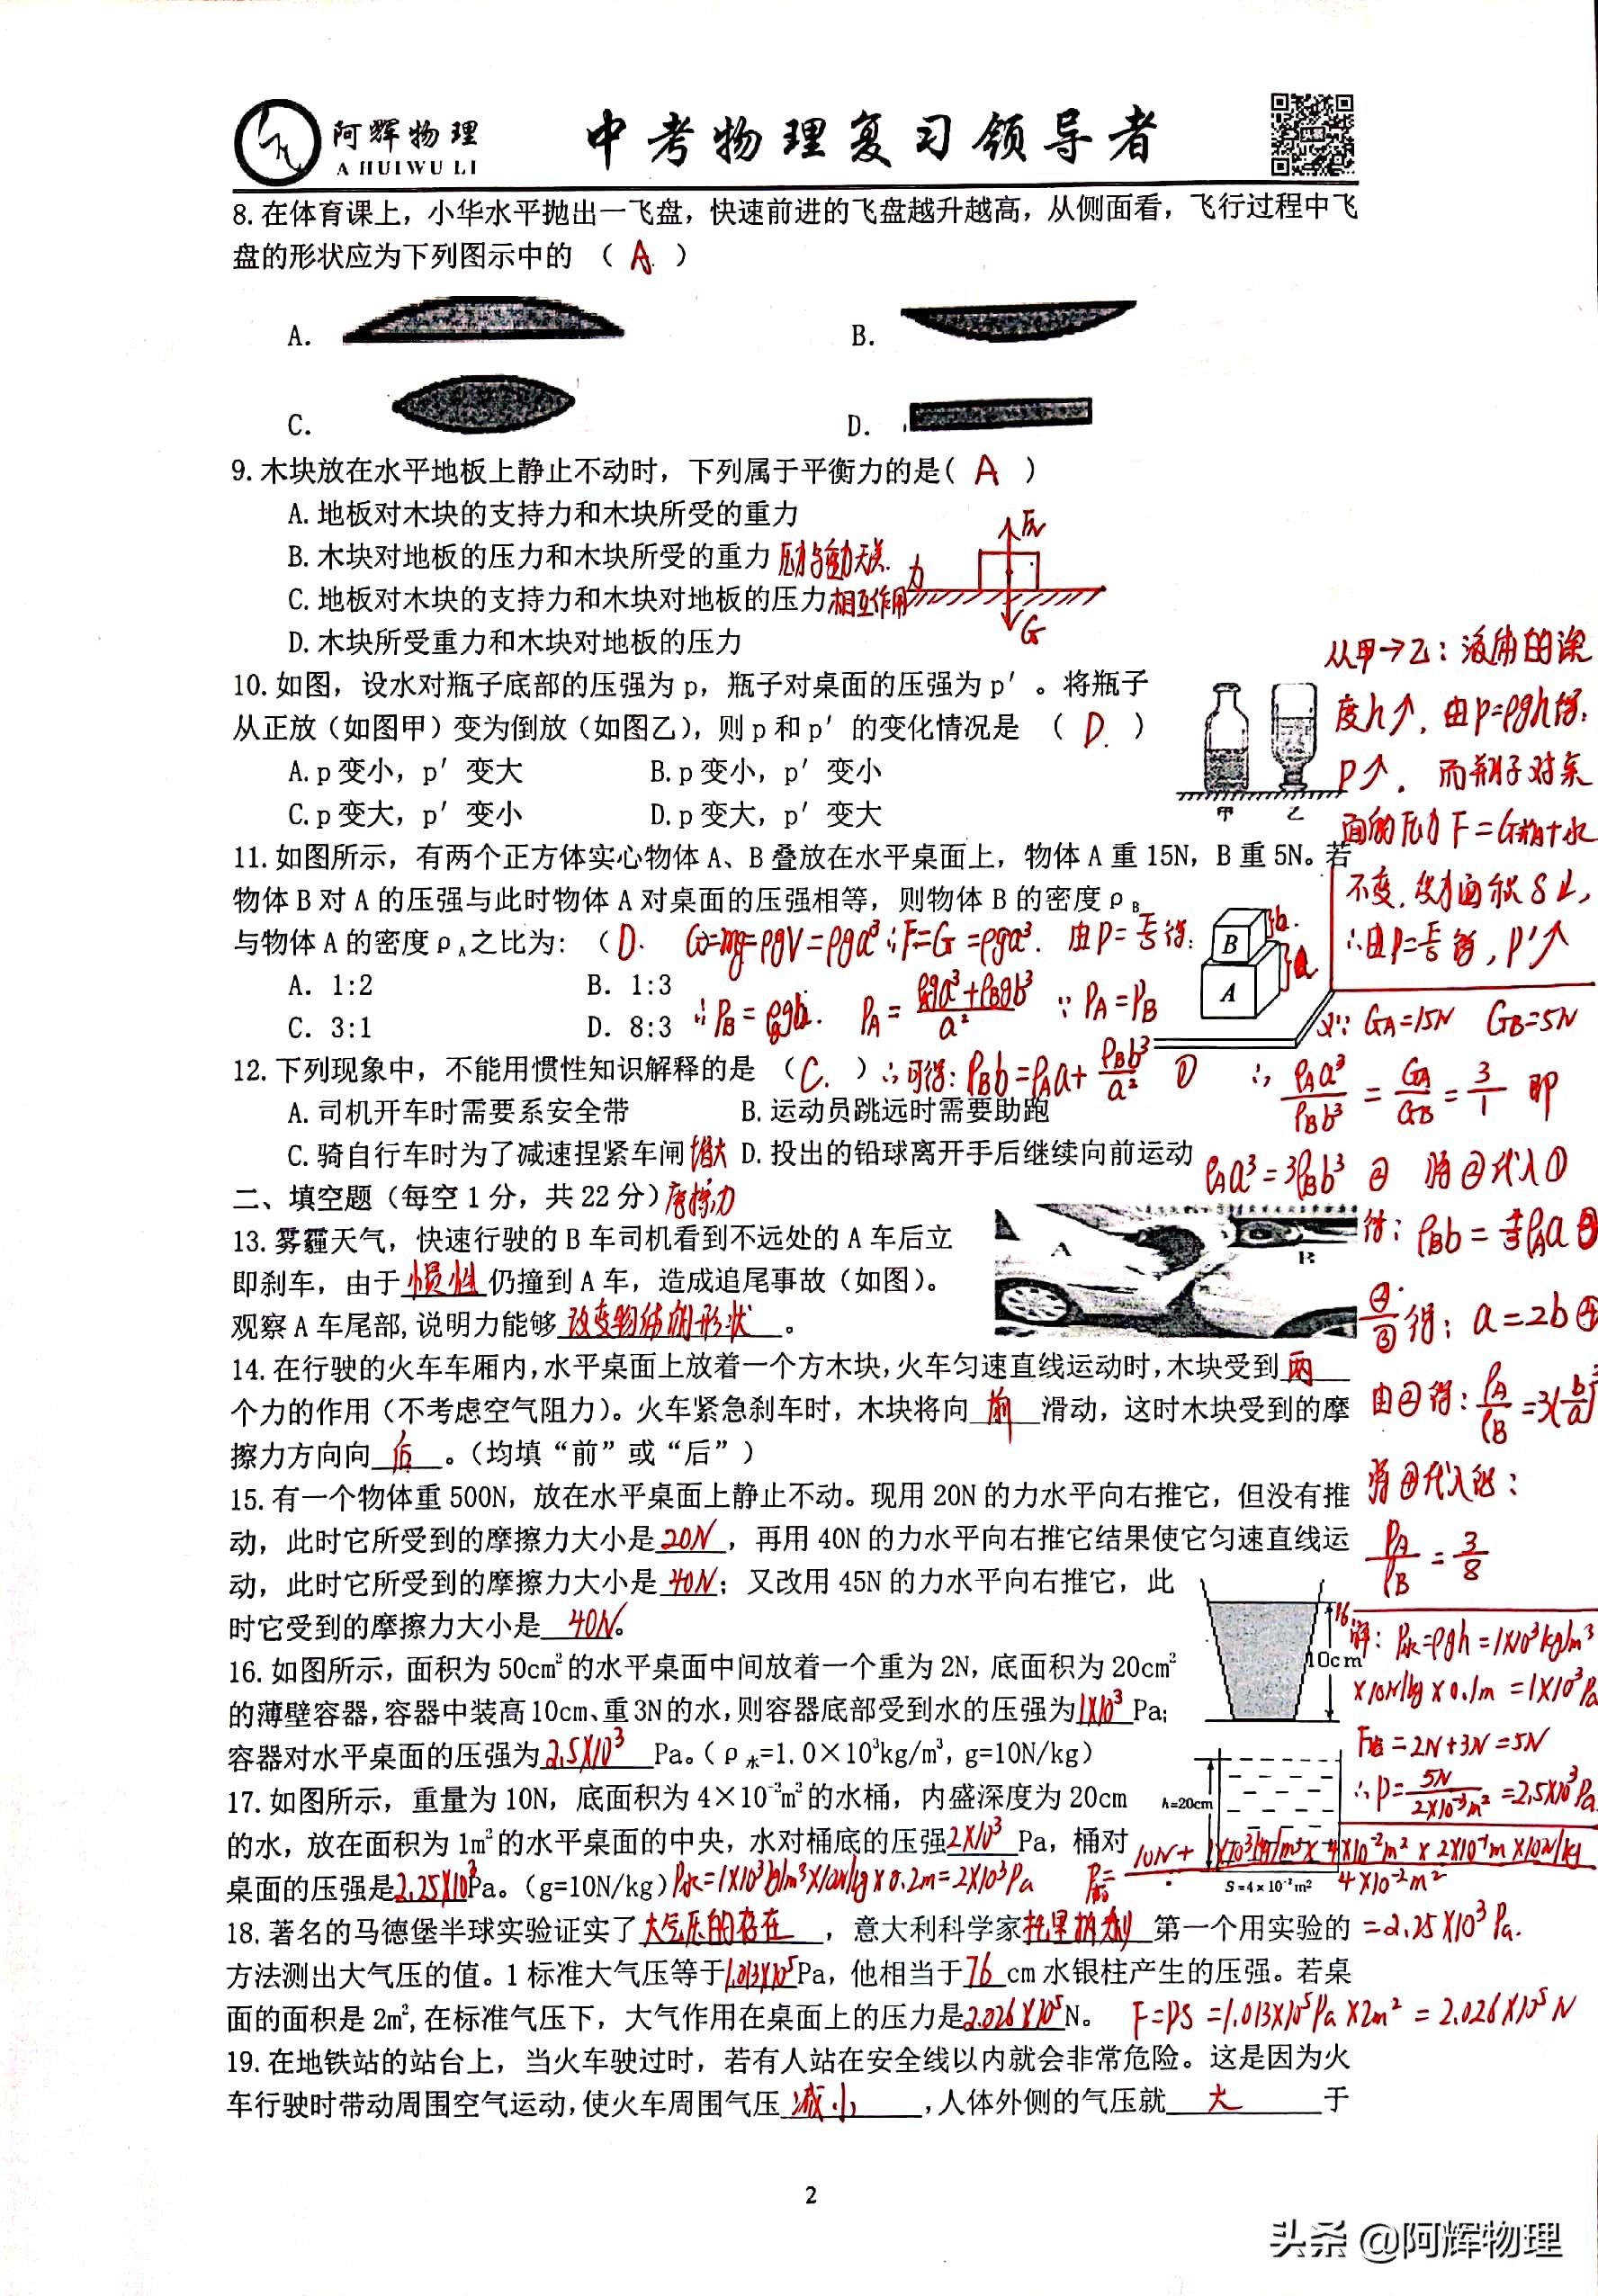 阿辉物理
A HUIWU LI
中考物理复习领导者
8.在体育课上，小华水平抛出一飞盘，快速前进的飞盘越升越高，从侧面看，飞行过程中飞
盘的形状应为下列图示中的 （ A. ）
A.
B.
C.
D.
9.木块放在水平地板上静止不动时，下列属于平衡力的是( A )
A.地板对木块的支持力和木块所受的重力
B.木块对地板的压力和木块所受的重力 压力与重力无关.
C.地板对木块的支持力和木块对地板的压力 相互作用力
D.木块所受重力和木块对地板的压力
FN
G
10.如图，设水对瓶子底部的压强为 p，瓶子对桌面的压强为 p′。将瓶子
从正放（如图甲）变为倒放（如图乙），则 p 和 p′ 的变化情况是 （ D. ）
A.p 变小，p′ 变大 B.p 变小，p′ 变小
C.p 变大，p′ 变小 D.p 变大，p′ 变大
甲 乙
从甲→乙：液体的深
度h↑，由p=ρgh得：
P↑. 而瓶子对桌
面的压力 F=G瓶+水
不变，受力面积 S↓,
∴由P=F/S得，P'↑
11.如图所示，有两个正方体实心物体 A、B 叠放在水平桌面上，物体 A 重 15N，B 重 5N。若
物体 B 对 A 的压强与此时物体 A 对桌面的压强相等，则物体 B 的密度ρB
与物体 A 的密度ρA之比为： （ D. G=mg=ρgV=ρga³ ∴F=G=ρga³. 由P=F/S得:
A. 1:2 B. 1:3
C. 3:1 D. 8:3
∴PB=ρBgb. PA=(ρAga³+ρBgb³)/a² ∵PA=PB
B
A
b.
a
又∵ GA=15N GB=5N
∴可得：ρBb=ρAa+ρBb³/a² ①
∴ ρAa³/ρBb³ = GA/GB = 3/1 即
ρAa³=3ρBb³ ② 将②代入①
得：ρBb=4/3ρAa ③
②/③得：a=2b ④
由②得：ρA/ρB=3(b/a)³
将④代入得：
ρA/ρB = 3/8
12.下列现象中，不能用惯性知识解释的是 （ C. ）
A.司机开车时需要系安全带 B.运动员跳远时需要助跑
C.骑自行车时为了减速捏紧车闸 增大摩擦力 D.投出的铅球离开手后继续向前运动
二、填空题（每空 1 分，共 22 分）
13.雾霾天气，快速行驶的 B 车司机看到不远处的 A 车后立
即刹车，由于 惯性 仍撞到 A 车，造成追尾事故（如图）。
观察 A 车尾部,说明力能够 改变物体的形状 。
A
B
14.在行驶的火车车厢内,水平桌面上放着一个方木块,火车匀速直线运动时,木块受到 两
个力的作用（不考虑空气阻力）。火车紧急刹车时，木块将向 前 滑动，这时木块受到的摩
擦力方向向 后 。（均填“前”或“后”）
15.有一个物体重 500N，放在水平桌面上静止不动。现用 20N 的力水平向右推它，但没有推
动，此时它所受到的摩擦力大小是 20N ，再用 40N 的力水平向右推它结果使它匀速直线运
动，此时它所受到的摩擦力大小是 40N ；又改用 45N 的力水平向右推它，此
时它受到的摩擦力大小是 40N 。
16.如图所示,面积为 50cm²的水平桌面中间放着一个重为 2N,底面积为 20cm²
的薄壁容器,容器中装高 10cm、重 3N 的水,则容器底部受到水的压强为 1X10³ Pa;
容器对水平桌面的压强为 2.5X10³ Pa。(ρ水=1.0×10³kg/m³, g=10N/kg)
10cm
16.
解：P水=ρgh=1X10³kg/m³
X10N/kg X 0.1m = 1X10³Pa
=2N+3N=5N
∴P=5N/2X10⁻³m²=2.5X10³Pa
17.如图所示，重量为 10N，底面积为 4×10⁻²m²的水桶，内盛深度为 20cm
的水，放在面积为 1m²的水平桌面的中央，水对桶底的压强 2X10³ Pa，桶对
桌面的压强是 2.25X10³ Pa。(g=10N/kg) P水=1X10³kg/m³X10N/kg X 0.2m=2X10³Pa
h=20cm
S=4×10⁻²m²
(10N+1X10³kg/m³X4X10⁻²m²X2X10⁻¹mX10N/kg)/4X10⁻²m²
=2.25X10³Pa.
18.著名的马德堡半球实验证实了 大气压的存在 ，意大利科学家 托里拆利 第一个用实验的
方法测出大气压的值。1 标准大气压等于 1.013X10⁵ Pa，他相当于 76 cm 水银柱产生的压强。若桌
面的面积是 2m²,在标准气压下，大气作用在桌面上的压力是 2.026X10⁵ N。 F=PS=1.013X10⁵Pa X2m²=2.026X10⁵N
19.在地铁站的站台上，当火车驶过时，若有人站在安全线以内就会非常危险。这是因为火
车行驶时带动周围空气运动,使火车周围气压 减小 ,人体外侧的气压就 大 于
2
头条 @阿辉物理